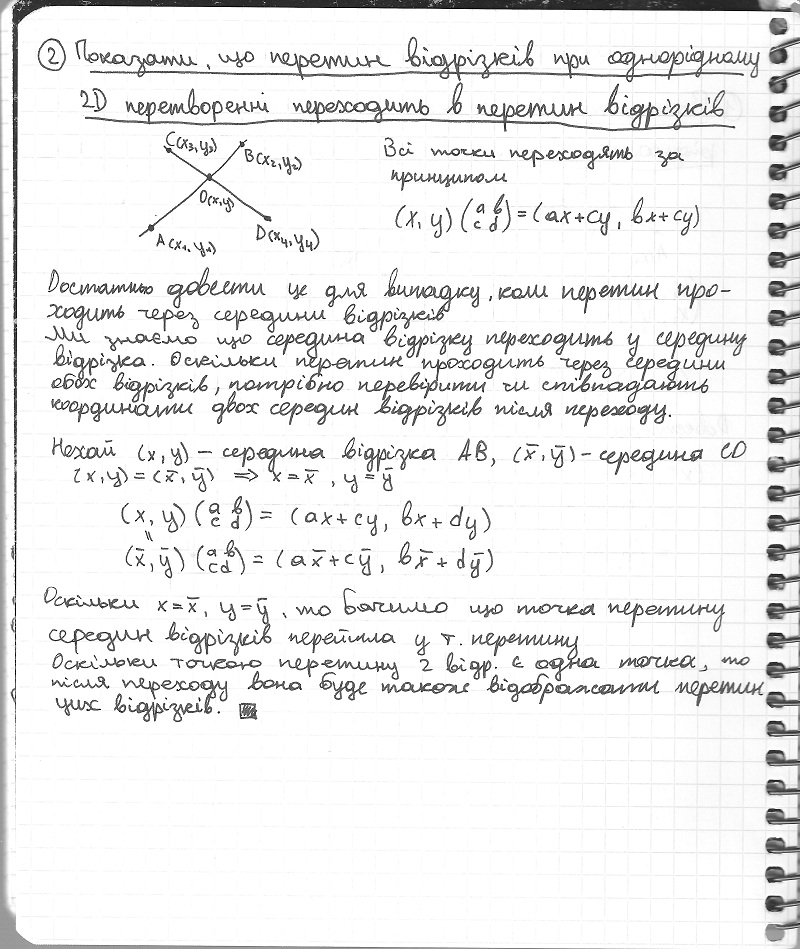 2 Показати, що перетин відрізків при однорідному
2D перетворенні переходить в перетин відрізків
C(x3, y3)
B(x2, y2)
O(x, y)
A(x1, y1)
D(x4, y4)
Всі точки переходять за
принципом
(x, y) (a b c d) = (ax+cy, bx+cy)
Достатньо довести це для випадку, коли перетин про-
ходить через середини відрізків
Ми знаємо що середина відрізку переходить у середину
відрізка. Оскільки перетин проходить через середини
обох відрізків, потрібно перевірити чи співпадають
координати двох середин відрізків після переходу.
Нехай (x, y) – середина відрізка AB, (x̄, ȳ) – середина CD
(x, y) = (x̄, ȳ) ⇒ x = x̄, y = ȳ
(x, y) (a b c d) = (ax+cy, bx+dy)
=
(x̄, ȳ) (a b c d) = (ax̄+cȳ, bx̄+dȳ)
Оскільки x = x̄, y = ȳ, то бачимо що точка перетину
середин відрізків перейшла у т. перетину
Оскільки точкою перетину 2 відр. є одна точка, то
після переходу вона буде також відображати перетин
цих відрізків.